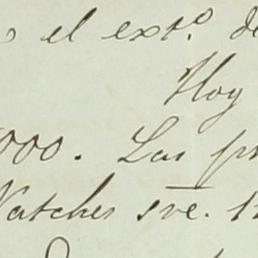 el ext.º de
Hoy
000. Las
Natches sre. 1